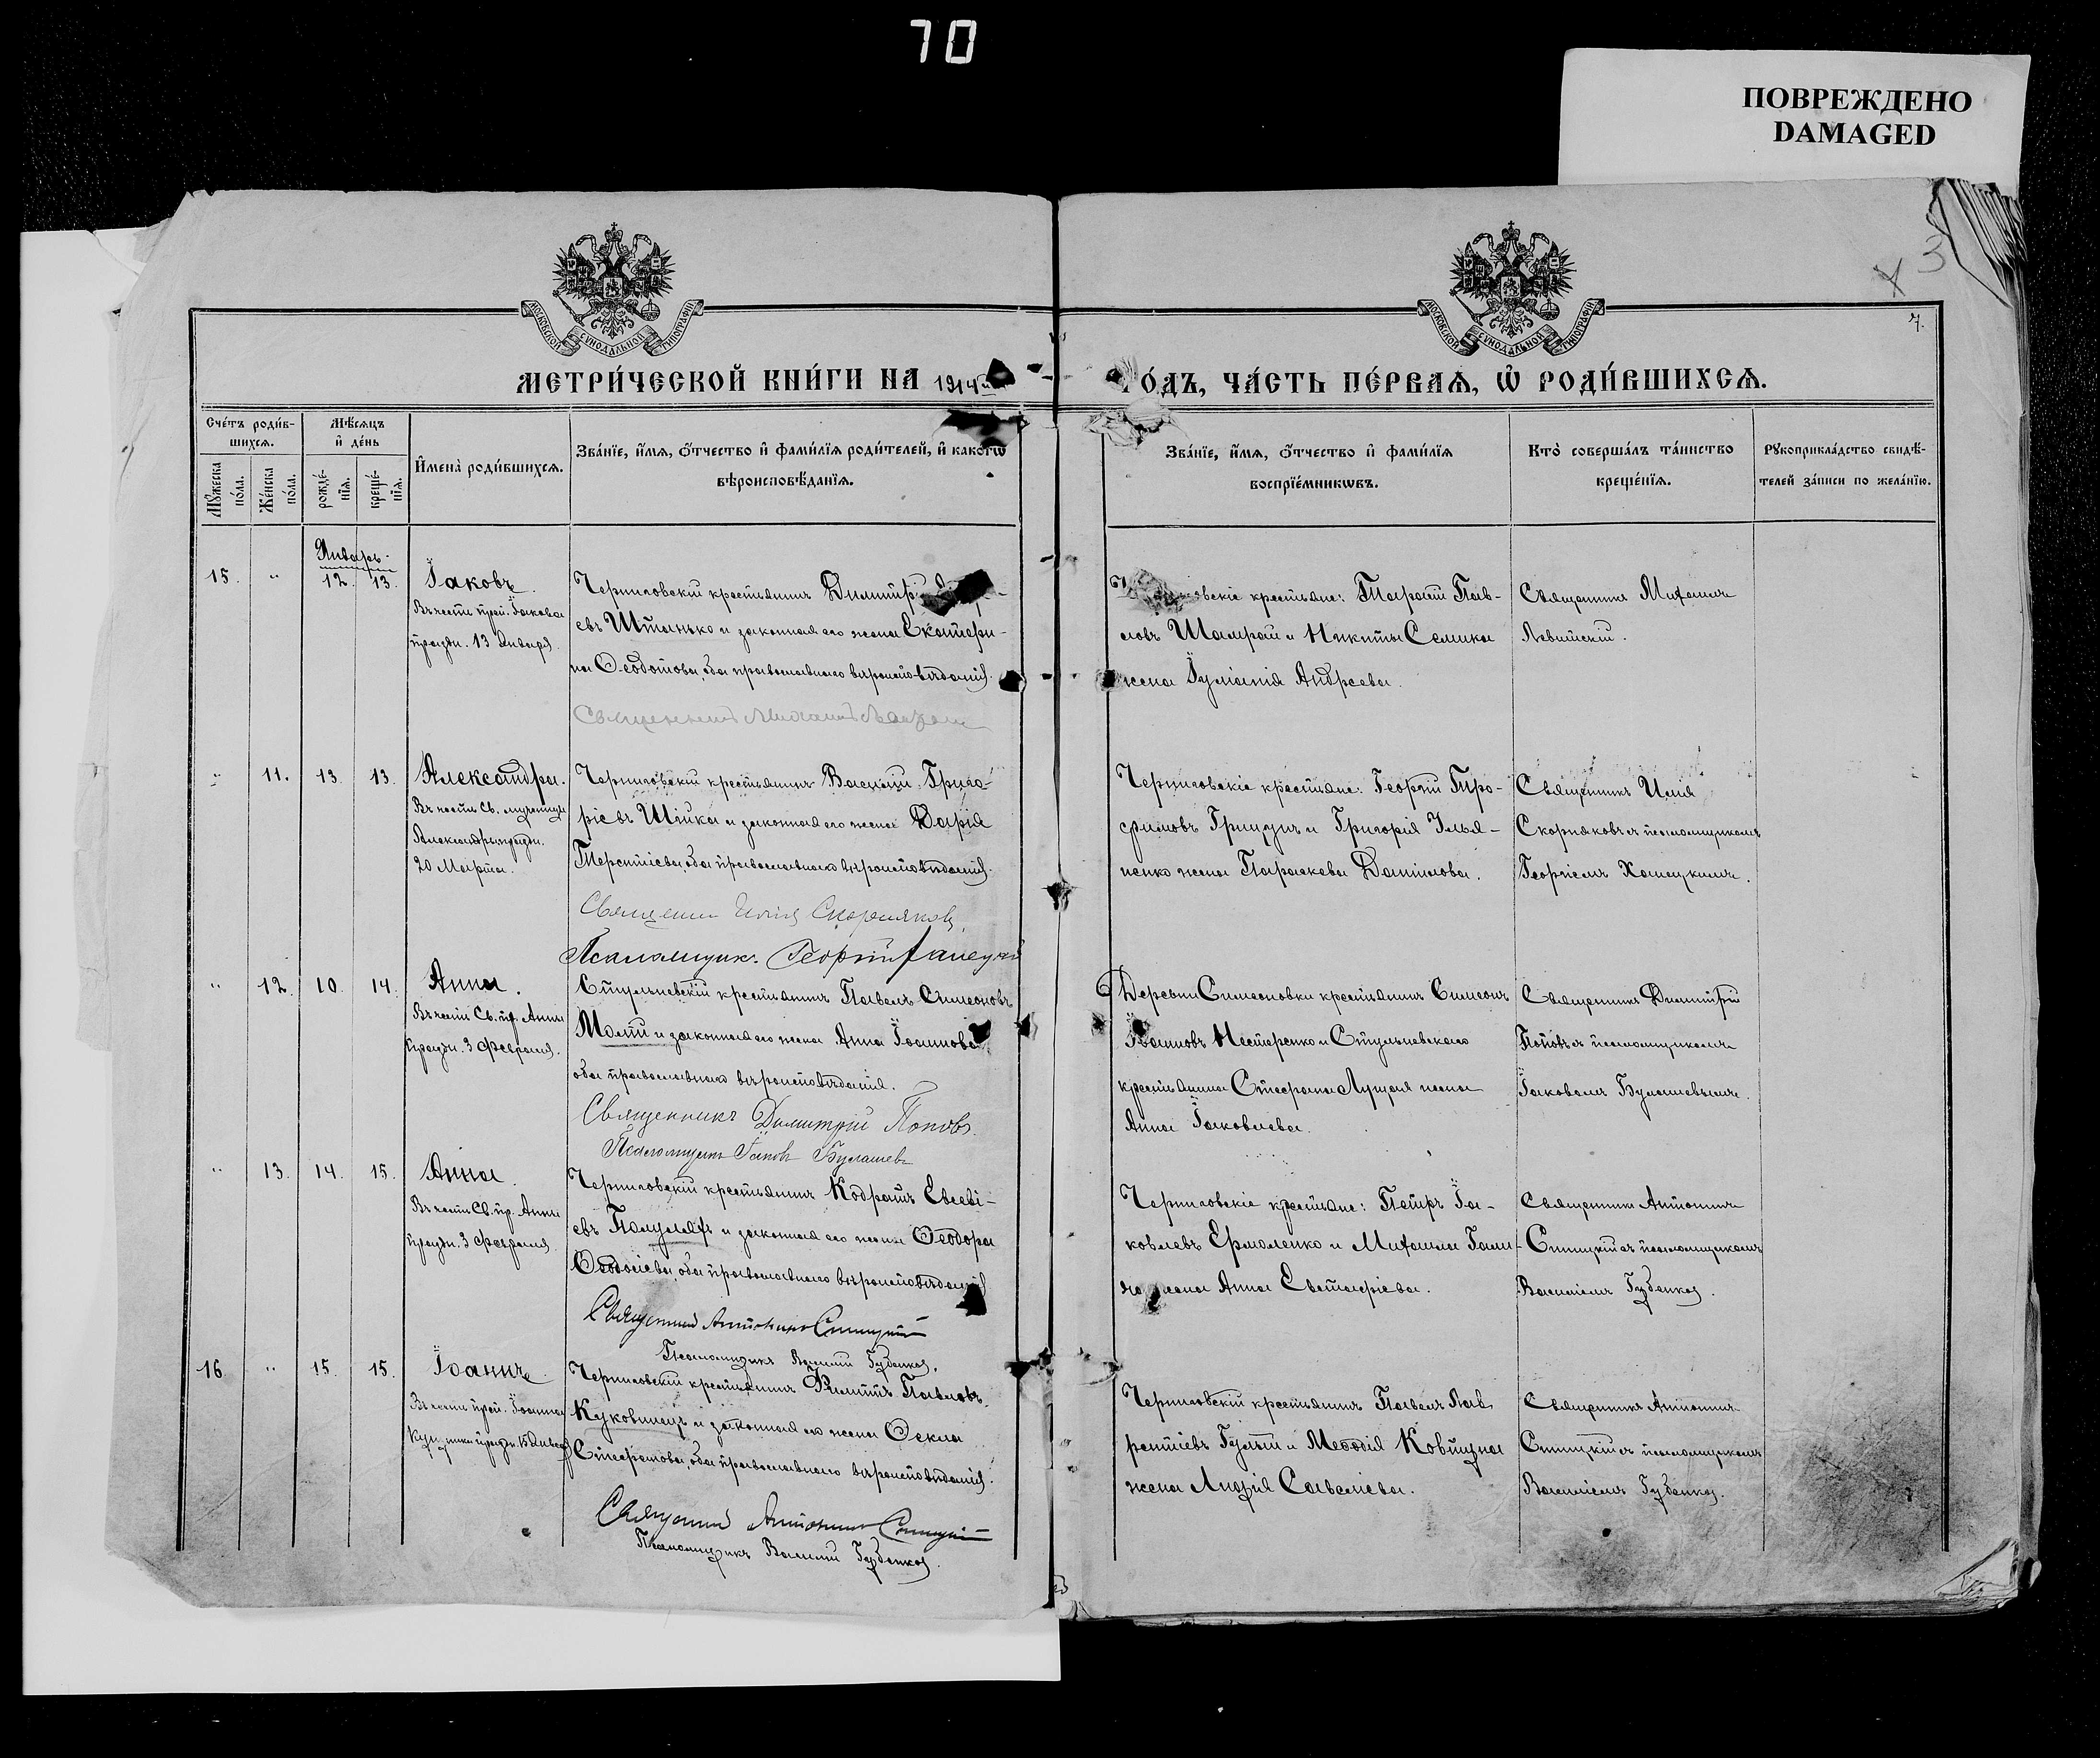 70
ПОВРЕЖДЕНО
DAMAGED
3
7.
МОСКОВСКОЙ СѴНОДАЛЬНОЙ ТИПОГРАФІИ
МОСКОВСКОЙ СѴНОДАЛЬНОЙ ТИПОГРАФІИ
МЕТРИ́ЧЕСКОЙ КНИ́ГИ НА 1914й
О́ДЪ, ЧА́СТЬ ПЕ́РВАѦ, Ѽ РОДИ́ВШИХСѦ.
Сче́тъ роди́в-
шихсѧ.
Мꙋ́жеска по́ла.
Же́нска по́ла.
Мѣ́сѧцъ
и҆ де́нь
рожде́-
нїѧ.
креще́-
нїѧ.
И҆мена̀ роди́вшихсѧ.
Зва́нїе, и҆́мѧ, ѻ҆́тчество и҆ фами́лїѧ роди́телей, и҆ како́гѡ
вѣроисповѣ́данїѧ.
Зва́нїе, и҆́мѧ, ѻ҆́тчество и҆ фами́лїѧ
воспрїе́мникѡвъ.
Кто̀ соверша́лъ та́инство
креще́нїѧ.
Рꙋкоприкла́дство свидѣ́-
телей за́писи по жела́нїю.
Январь.
15. " 12. 13. Іаковъ.
Въ честь преп. Іакова
праздн. 13 Января.
Черниговскій крестьянинъ Димитрі
евъ Штанько и законная его жена Екатери-
на Ѳеодотова, оба православнаго вѣроисповѣданія.
Священникъ Михаилъ
крестьяне: Тарасій Пав-
ловъ Шамрай и Никиты Семика
жена Іуліанія Андреева.
Священникъ Михаилъ
" 11. 13. 13. Александра.
Въ честь Св. мученицы
Александры праздн.
20 Марта.
Черниговскій крестьянинъ Василій Григо-
ріевъ Шійка и законная его жена Дарія
Терентіева, оба православнаго вѣроисповѣданія.
Священникъ Илія Скорняковъ
Псаломщикъ Георгій Ханецкій
Черниговскіе крестьяне: Георгій Тро-
фимовъ Грицунъ и Григорія Илья-
шенко жена Параскева Даніилова.
Священникъ Илія
Скорняковъ съ псаломщикомъ
Георгіемъ Ханецкимъ.
" 12. 10. 14. Анна.
Въ честь Св. пр. Анны
праздн. 3 Февраля.
крестьянинъ Павелъ Симеоновъ
и законная его жена Анна Іоаннова
оба православнаго вѣроисповѣданія.
Священникъ Димитрій Поповъ
Псаломщикъ Іаковъ Булашевъ
Деревни Симеоновки крестьянинъ Симеонъ
Іоанновъ Нестеренко и
крестьянина Стефана Луцая жена
Анна Іаковлева.
Священникъ Димитрій
Поповъ съ псаломщикомъ
Іаковомъ Булашевымъ.
" 13. 14. 15. Анна.
Въ честь Св. пр. Анны
праздн. 3 Февраля.
Черниговскій крестьянинъ Кодратъ Евсеві-
евъ и законная его жена Ѳеодора
Ѳеодосіева, оба православнаго вѣроисповѣданія
Священникъ Антонинъ Синицкій
Псаломщикъ Василій Губенко.
Черниговскіе крестьяне: Петръ Іа-
ковлевъ Ермоленко и Михаила
жена Анна Евстафіева.
Священникъ Антонинъ
Синицкій съ псаломщикомъ
Василіемъ Губенко.
16. " 15. 15. Іоаннъ
Въ честь преп. Іоанна
Кущника праздн. 15 Января
Черниговскій крестьянинъ Филиппъ Павловъ
Куковинецъ и законная его жена Ѳекла
Стефанова, оба православнаго вѣроисповѣданія.
Священникъ Антонинъ Синицкій
Псаломщикъ Василій Губенко.
Черниговскій крестьянинъ Павелъ Лав
рентіевъ и Меѳодія Ковтуна
жена Марія Савеліева.
Священникъ Антонинъ
Синицкій съ псаломщикомъ
Василіемъ Губенко.